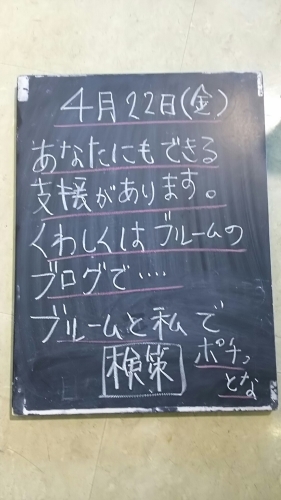 4月22日(金)
あなたにもできる
支援があります。
くわしくはブルームの
ブログで····
ブルームと私で
検策 ポチっ
とな